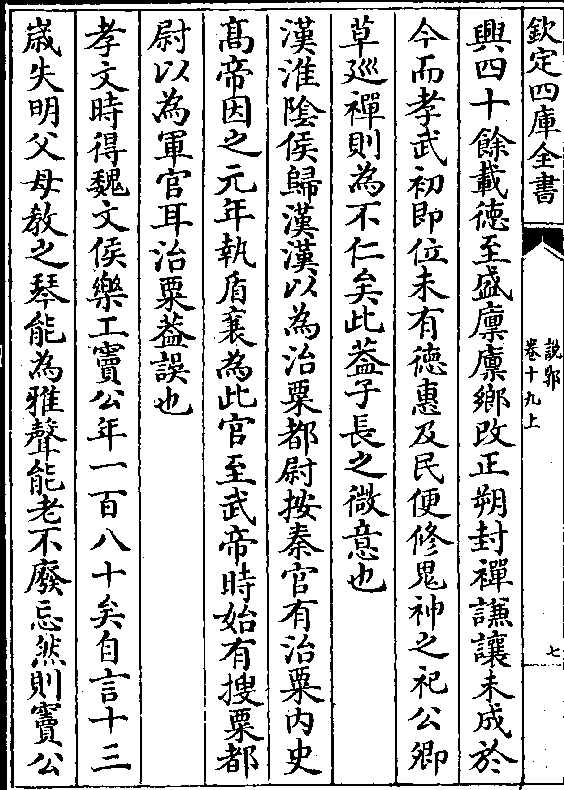 欽定四庫全書
說郛
卷十九上
七
興四十餘載德至盛廪廪鄉改正朔封禪謙讓未成於
今而孝武初即位未有德惠及民便修鬼神之祀公卿
草廵禪則為不仁矣此葢子長之微意也
漢淮隂侯歸漢漢以為治粟都尉按秦官有治粟内史
髙帝因之元年執盾襄為此官至武帝時始有搜粟都
尉以為軍官耳治粟葢誤也
孝文時得魏文侯樂工竇公年一百八十矣自言十三
嵗失明父母教之琴能為雅聲能老不廢忘然則竇公